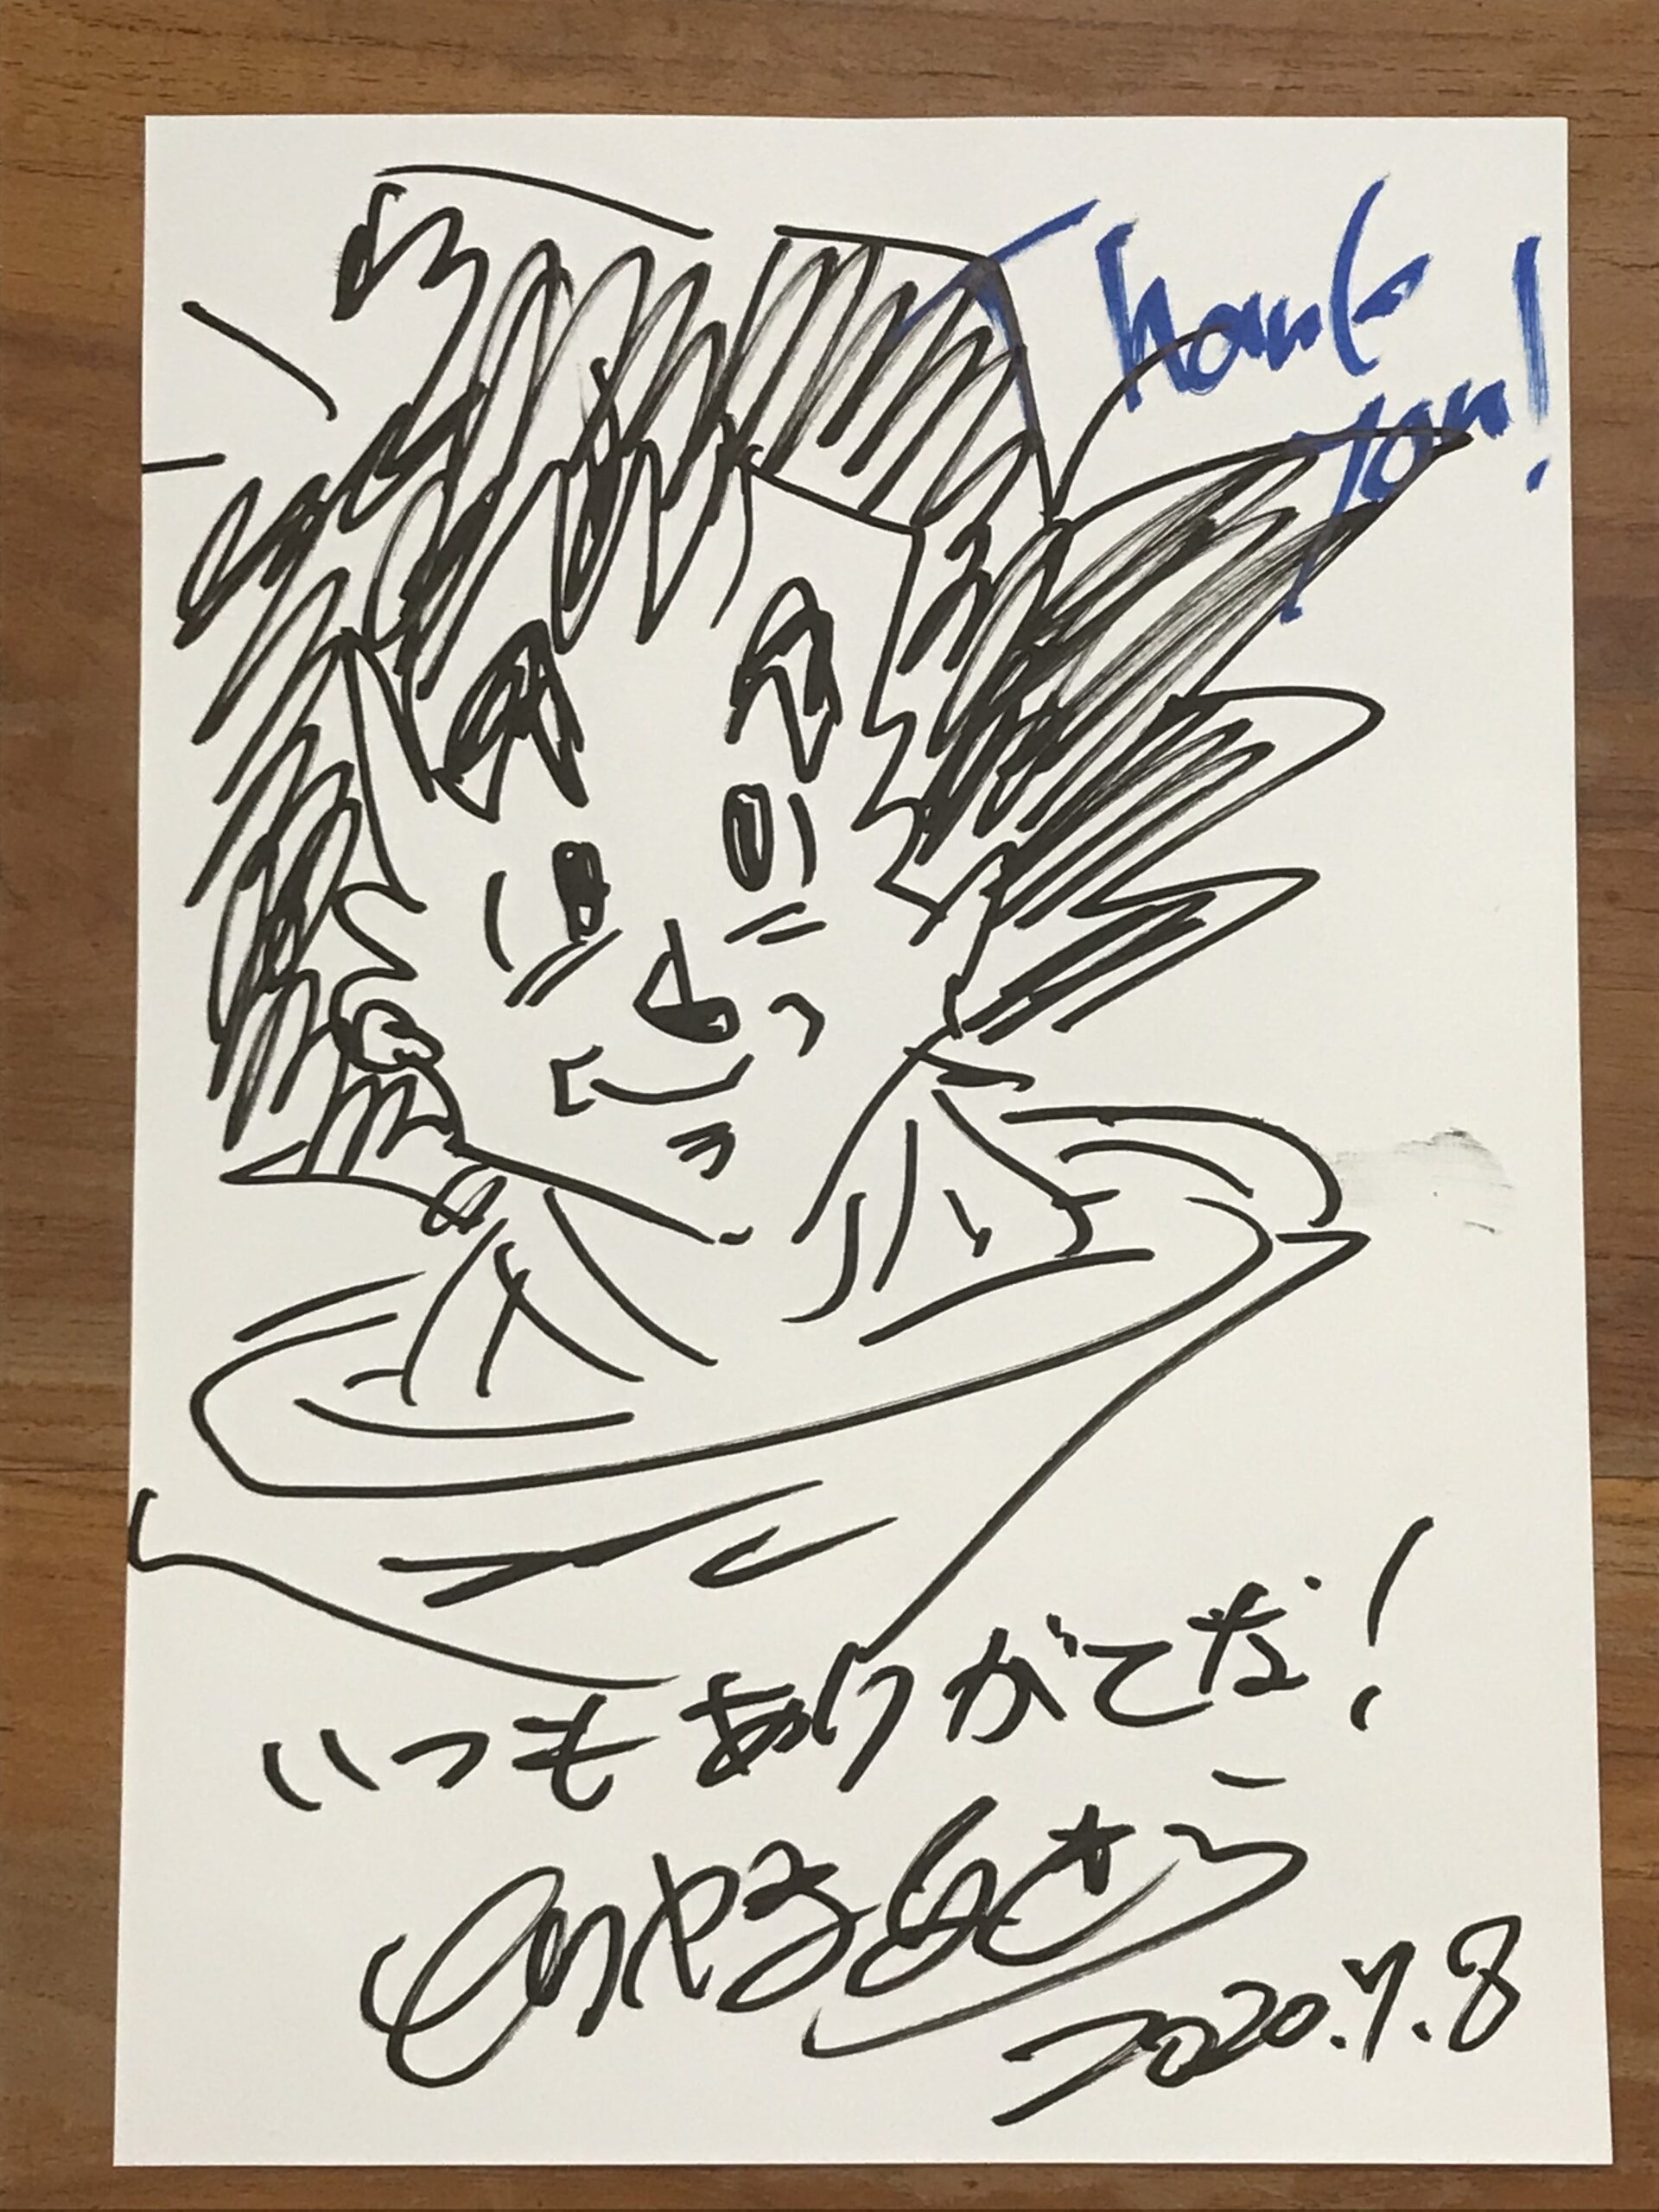 Thank
You!
いつもありがてな!
2020.7.8